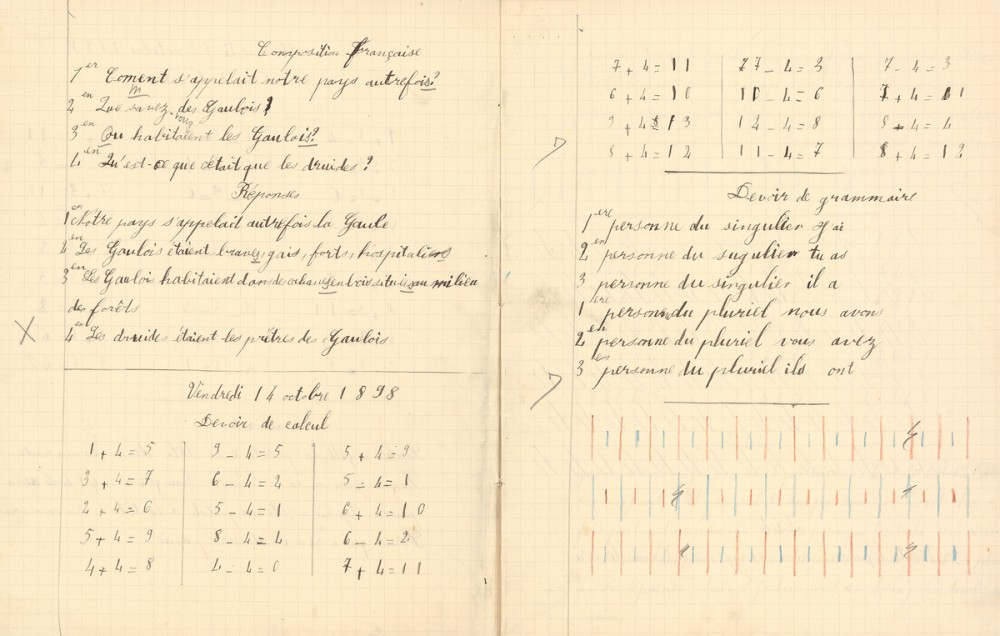 Composition Française
1er Coment s'appelait notre pays autrefois?
m
2en Que savez-vous des Gaulois?
3en Ou habitaient les Gaulois?
4en Qu'est-ce que c'était que les druides?
Réponses
1er Notre pays s'appelait autrefois la Gaule
2en Les Gaulois étaient braves, gais, forts, hospitaliers
3en Les Gaulois habitaient dans des cabanes en bois situées au milieu
des forêts
4en Les druides étaient les prêtres des Gaulois
Vendredi 14 octobre 1898
Devoir de calcul
1+4=5 9-4=5 5+4=9
3+4=7 6-4=2 5-4=1
2+4=6 5-4=1 6+4=10
5+4=9 8-4=4 6-4=2
4+4=8 4-4=0 7+4=11
7+4=11 -4=3 7-4=3
6+4=10 10-4=6 7+4=11
9+4=13 12-4=8 8-4=4
8+4=12 11-4=7 8+4=12
Devoir de grammaire
1ere personne du singulier J'ai
2en personne du sugulier tu as
3 personne du singulier il a
1ere personne du pluriel nous avons
2en personne du pluriel vous avez
3en personne du pluriel ils ont